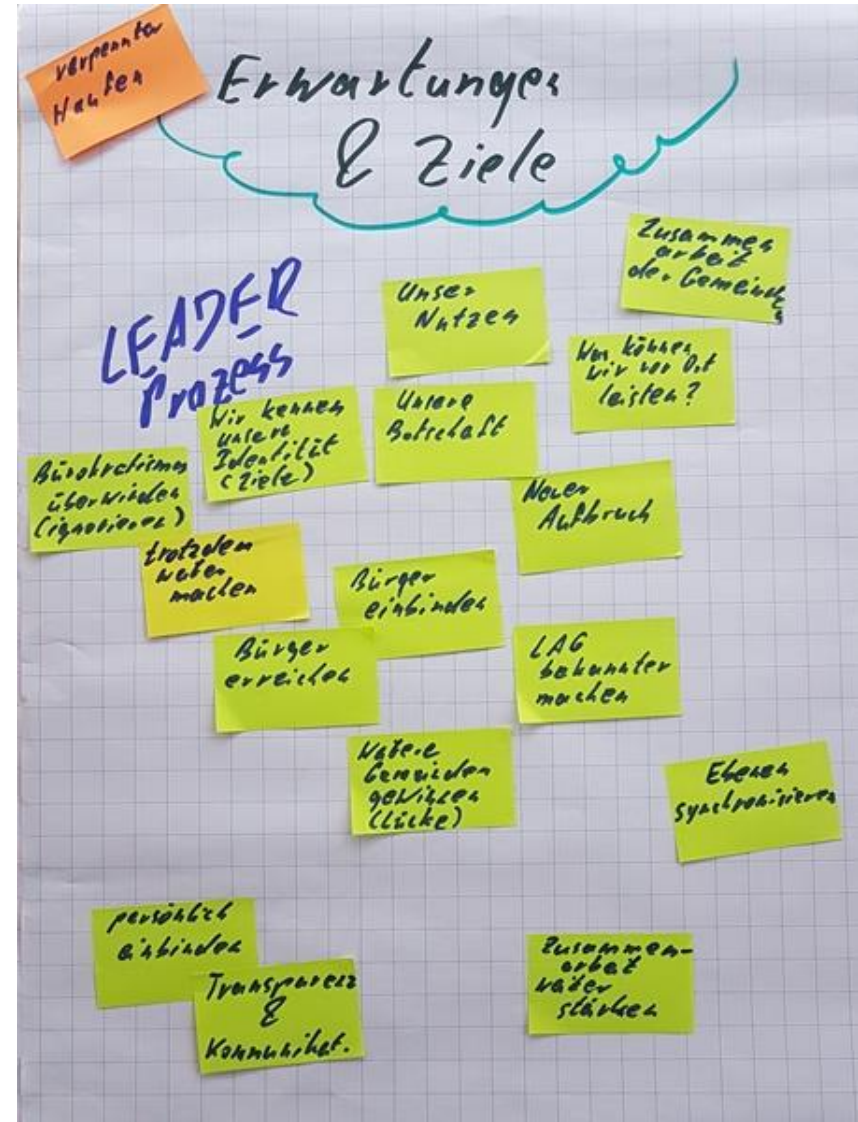 verpennter
Haufen
Erwartungen
& Ziele
LEADER
Prozess
Unser
Nutzen
Zusammen
arbeit
der Gemeinden
Was können
wir vor Ort
leisten?
Wir kennen
unsere
Identität
(Ziele)
Unsere
Botschaft
Bürokratismus
überwinden
(ignorieren)
Neuer
Aufbruch
trotzdem
weiter
machen
Bürger
einbinden
Bürger
erreichen
LAG
bekannter
machen
Weitere
Gemeinden
gewinnen
(Lücke)
Ebenen
synchronisieren
persönlich
einbinden
Transparenz
&
Kommunikat.
Zusammen-
arbeit
weiter
stärken